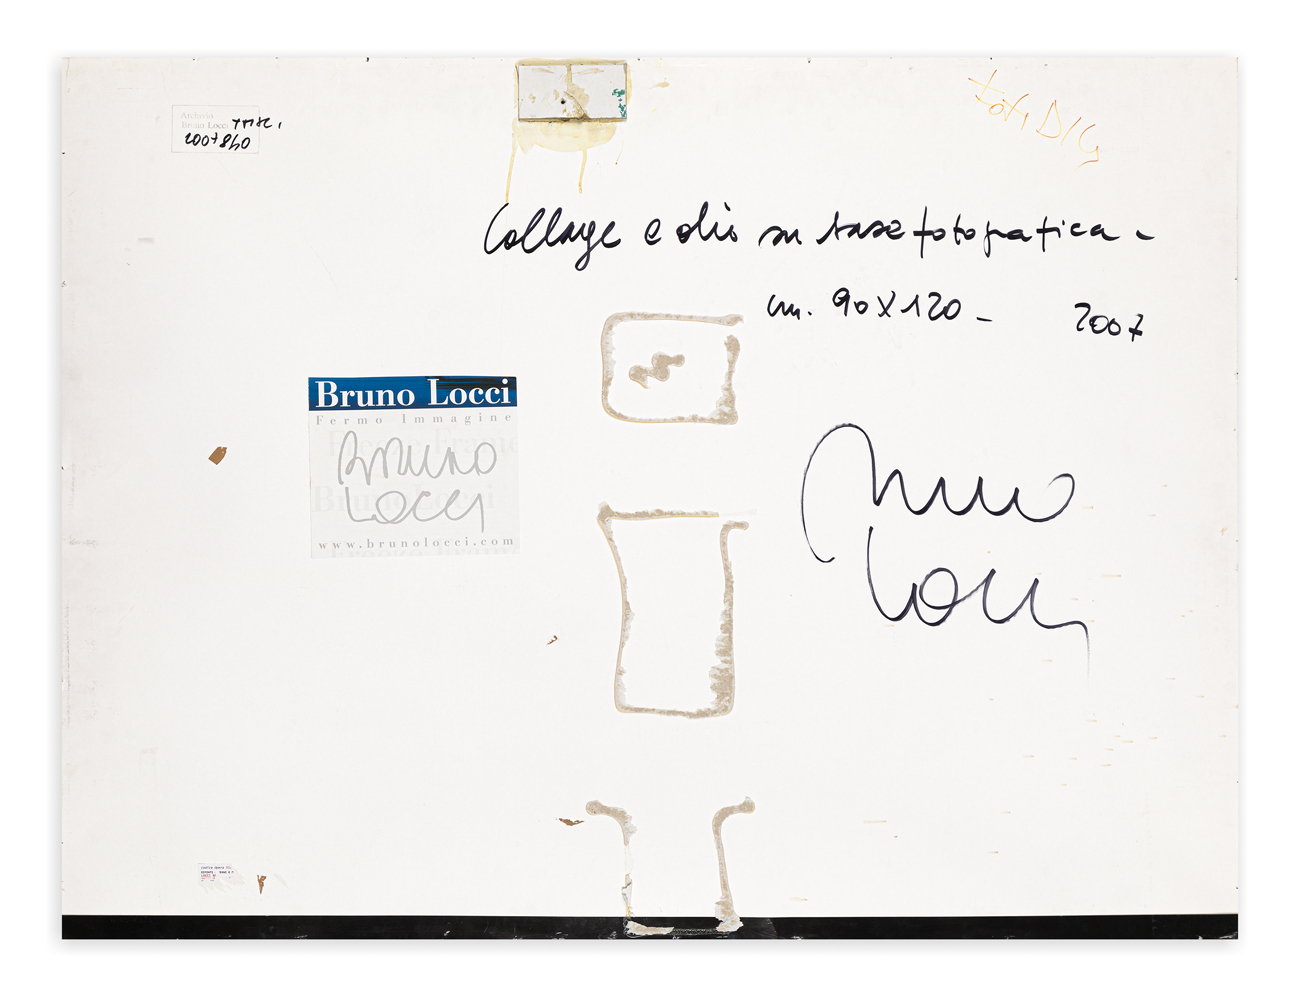 Archivio
Bruno Locci
2007840
Foto DIG
Collage e olio su base fotografica -
cm. 90 X 120 - 2007
Bruno Locci
Fermo Immagine
BRUNO
LOCCI
www.brunolocci.com
Bruno
Locci